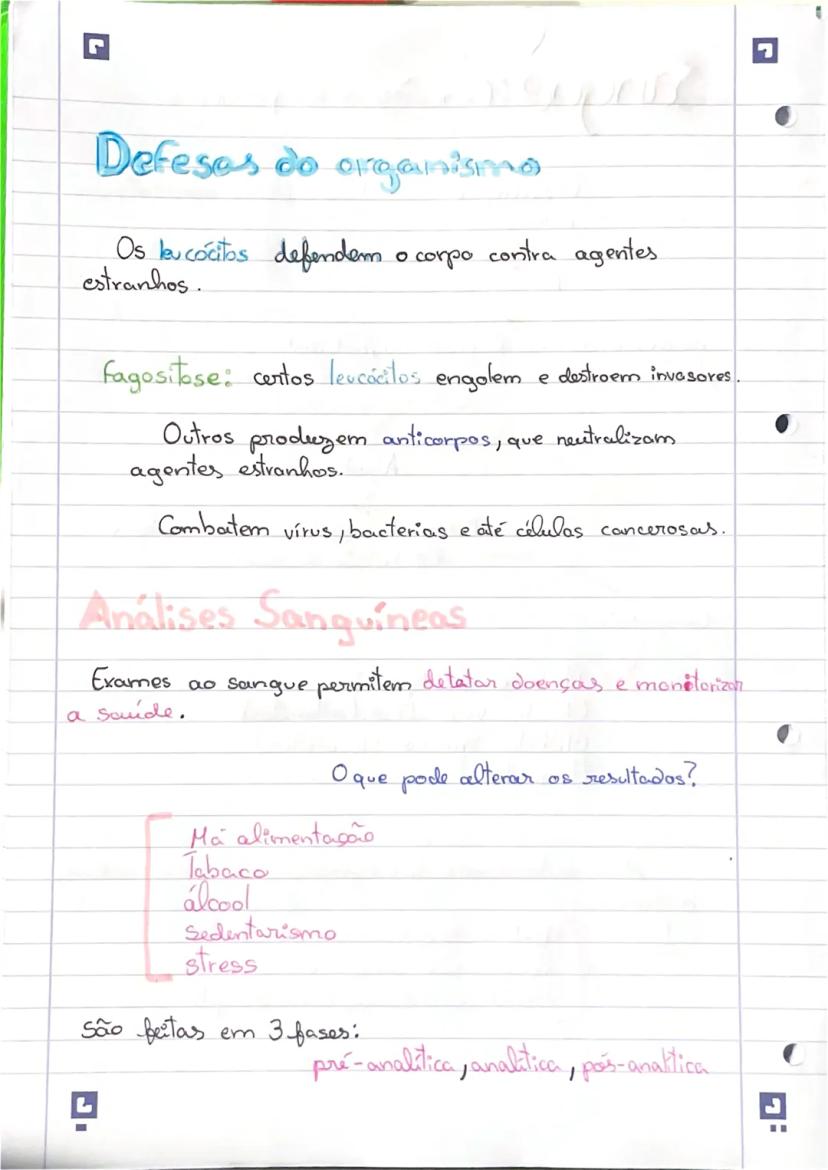 Defesas do organismo
Os leucócitos defendem o corpo contra agentes
estranhos.
Fagositose: certos leucócitos engolem e destroem invasores.
Outros produzem anticorpos, que neutralizam
agentes estranhos.
Combatem vírus, bacterias e até células cancerosas.
Análises Sanguíneas
Exames ao sangue permitem detatar doenças e monitorizar
a saúde.
O que pode alterar os resultados?
Má alimentação
Tabaco
álcool
sedentarismo
stress
São feitas em 3 fases:
pré-analítica, analítica, pós-analítica